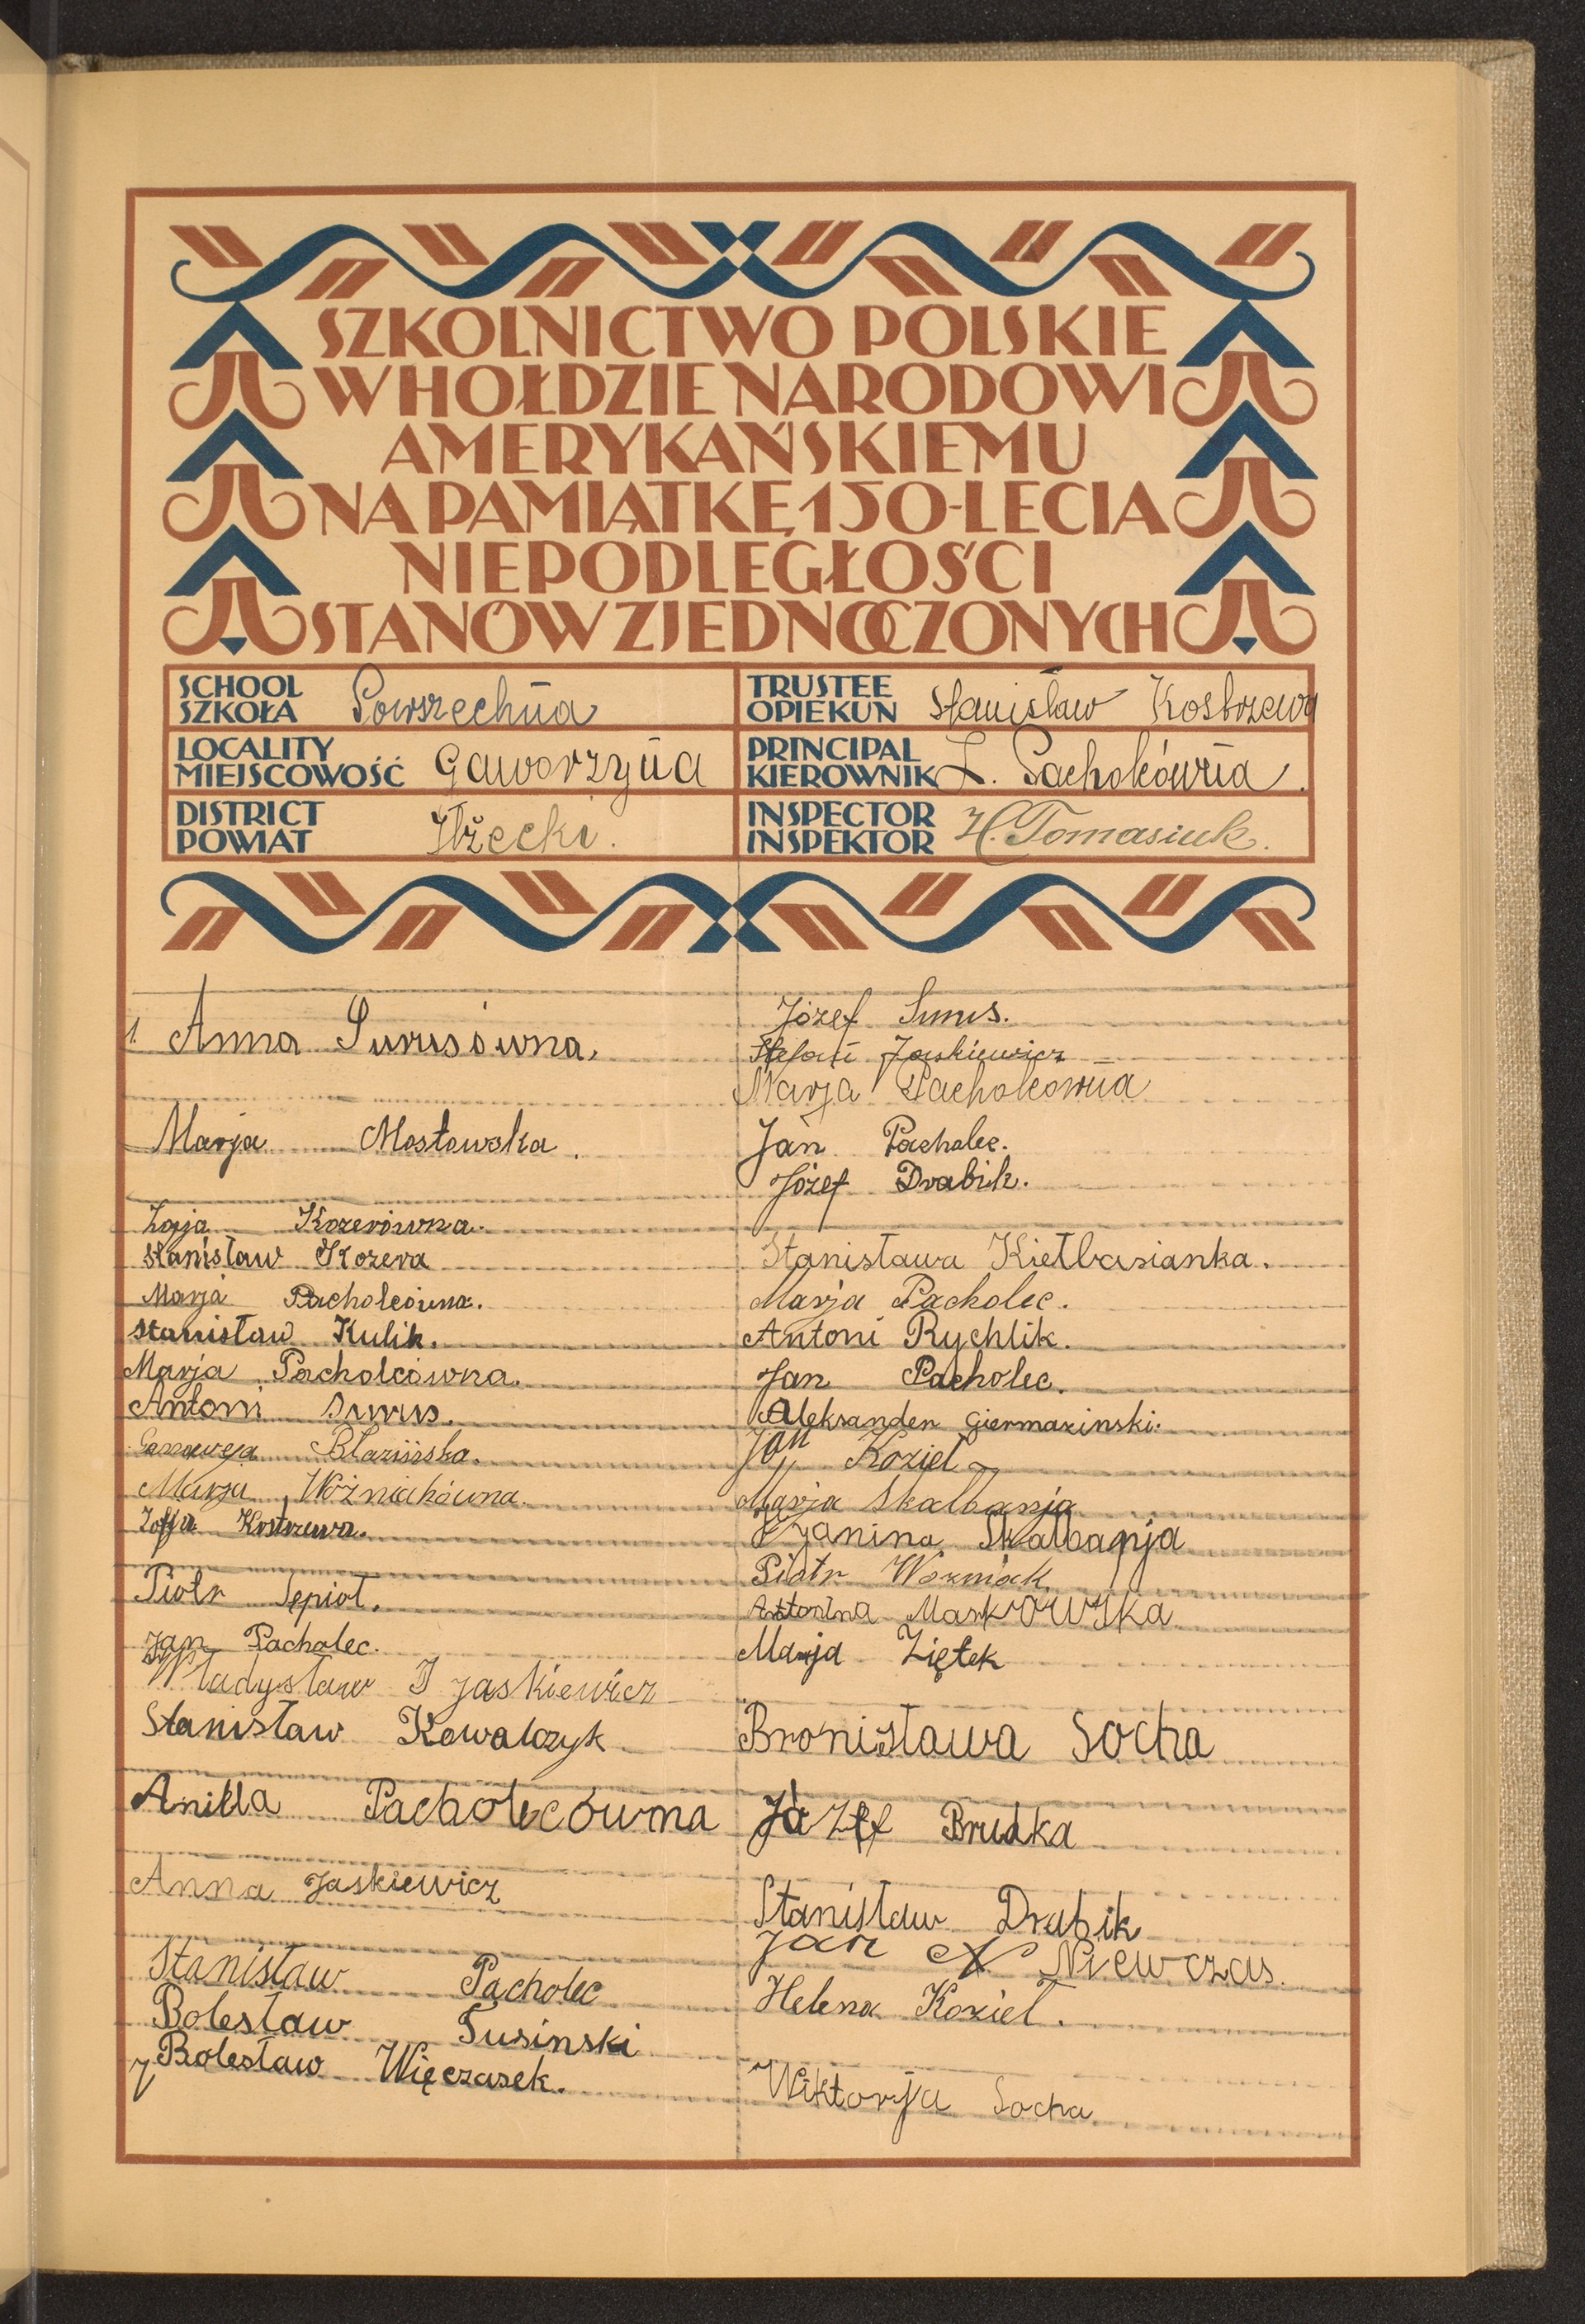 SZKOLNICTWO POLSKIE
W HOŁDZIE NARODOWI
AMERYKAŃSKIEMU
NA PAMIĄTKĘ 150-LECIA
NIEPODLEGŁOŚCI
STANÓW ZJEDNOCZONYCH
SCHOOL
SZKOŁA Powszechna
TRUSTEE
OPIEKUN Stanisław Kostrzewa
LOCALITY
MIEJSCOWOŚĆ Gaworzyna
PRINCIPAL
KIEROWNIK Z. Pacholcówna.
DISTRICT
POWIAT Iłżecki.
INSPECTOR
INSPEKTOR H. Tomasiuk.
1. Anna Surusówna,
Marja Mosłowska.
Zofja Kozerówna.
Stanisław Kozera
Marja Pacholcówna.
Stanisław Kulik.
Marja Pacholcówna.
Antoni Surus.
Genowefa Błazińska.
Marja Woźniakówna.
Zofja Kostrzewa.
Piotr Sępioł.
Jan Pacholec.
Władysław J Jaskiewicz
Stanisław Kowalczyk
Aniela Pacholecówna
Anna Jaskiewicz
Stanisław Pacholec
Bolesław Tusinski
Bolesław Więczasek.
Józef Surus.
Stefan Jaskiewicz
Marja Pacholcówna
Jan Pacholec.
Józef Drabik.
Stanisława Kiełbasianka.
Marja Pacholec.
Antoni Rychlik.
Jan Pacholec.
Aleksander Giermazinski.
Jan Kozieł
Marja Skalbanja
Janina Skalbanja
Piotr Wozniak.
Antonina Markowska
Marja Ziętek
Bronisława Socha
Józef Brudka
Stanisław Drabik
Jan N Niewczas.
Helena Kozieł.
Wiktorja Socha.